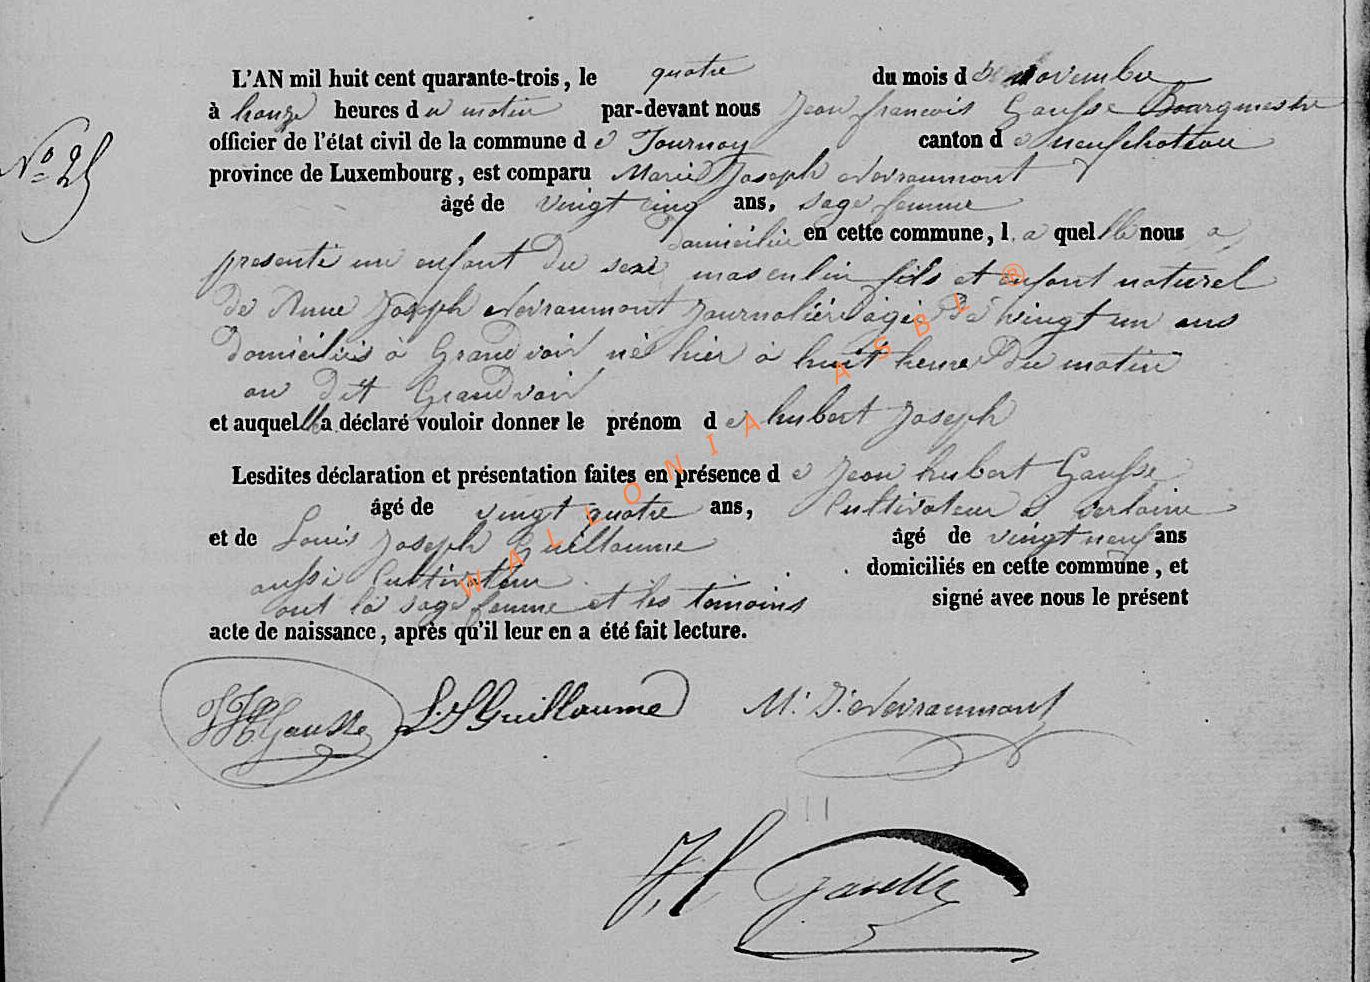 L'AN mil huit cent quarante-trois, le quatre du mois de novembre
à honze heures du matin par-devant nous Jean francois Gausse Bourgmestre
N° 25
officier de l'état civil de la commune de Tournay canton de neufchateau
province de Luxembourg, est comparu Marie Joseph Nevraumont
âgé de vingt cinq ans, sage femme
domiciliée en cette commune, la quelle nous a
presenté un enfant du sexe masculin fils et enfant naturel
de Anne Joseph Nevraumont Journalière agée de vingt un ans
domiciliés à Grandvoir né hier à huit heures du matin
au dit Grandvoir
et auquel a déclaré vouloir donner le prénom de hubert Joseph
Lesdites déclaration et présentation faites en présence de Jean hubert Gausse
âgé de vingt quatre ans, Cultivateur
et de Louis Joseph Guillaume âgé de vingt neuf ans
aussi Cultivateur domiciliés en cette commune, et
ont la sage femme et les témoins signé avec nous le présent
acte de naissance, après qu'il leur en a été fait lecture.
JH Gausse L. J Guillaume M. J. Nevraumont
J, f Gausse
WALLONIA ASBL ®